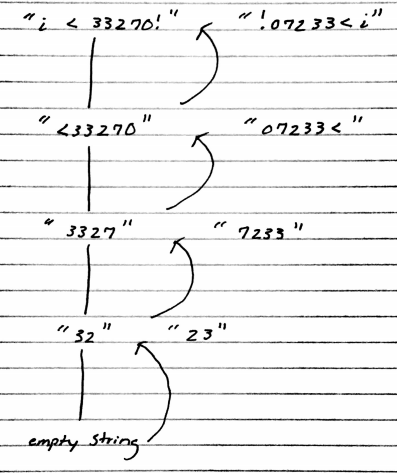 "i < 33270!" "!07233< i"
"<33270" "07233<"
"3327" "7233"
"32" "23"
empty string